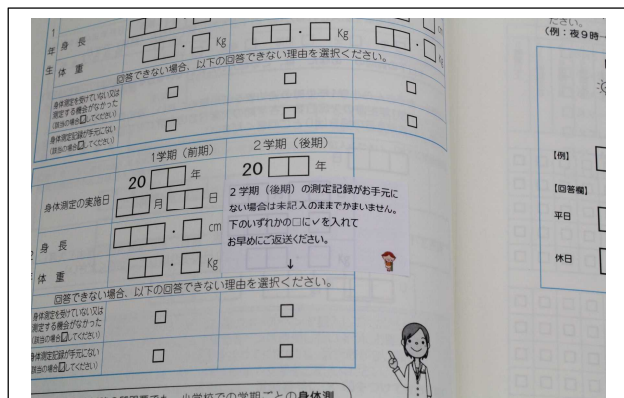 1
年
生
身 長
体 重
Kg
Kg
cm
Kg
回答できない場合、以下の回答できない理由を選択ください。
身体測定を受けていない又は
測定する機会がなかった
(該当の場合✓してください)
身体測定記録が手元にない
(該当の場合✓してください)
1学期（前期）
2学期（後期）
身体測定の実施日
20 年
20 年
月 日
身 長
cm
体 重
Kg
2学期（後期）の測定記録がお手元に
ない場合は未記入のままでかまいません。
下のいずれかの□に✓を入れて
お早めにご返送ください。
↓
回答できない場合、以下の回答できない理由を選択ください。
身体測定を受けていない又は
測定する機会がなかった
(該当の場合✓してください)
身体測定記録が手元にない
(該当の場合✓してください)
小学校での学期ごとの身体測
ださい。
(例：夜9時
【例】
【回答欄】
平日
休日